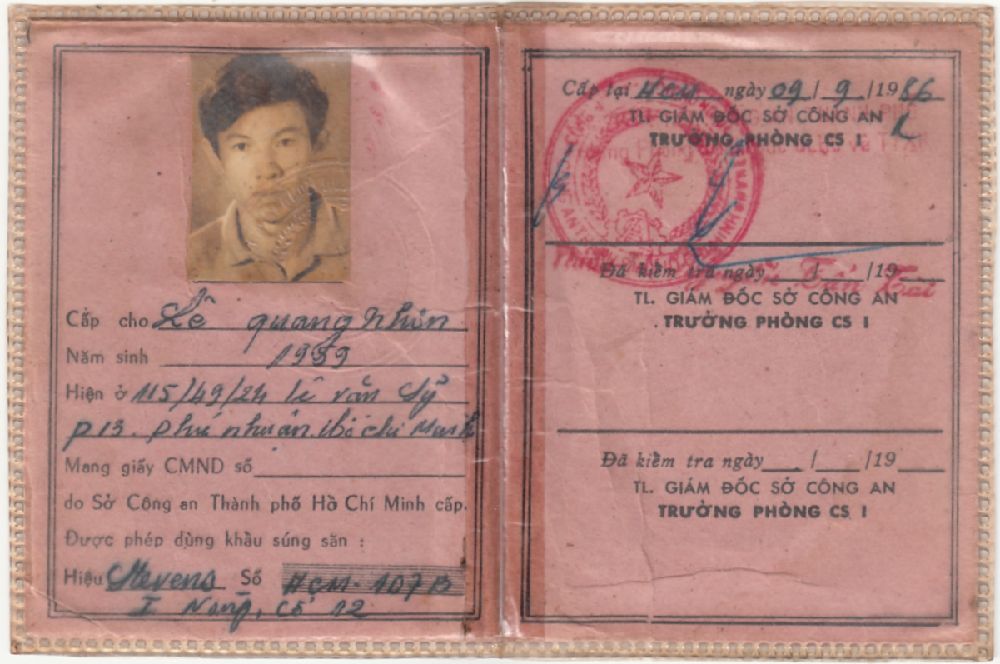 Cấp cho Lê quang Nhơn
Năm sinh 1939
Hiện ở 115/49/24 lê văn Sỹ
p13. phú nhuận
Mang giấy CMND số
do Sở Công an Thành phố Hồ Chí Minh cấp.
Được phép dùng khẩu súng săn :
Hiệu Stevens Số HCM-107B
I Nòng, Cỡ 12
Cấp lại HCM ngày 09/9/1986
TL. GIÁM ĐỐC SỞ CÔNG AN
TRƯỞNG PHÒNG CS I
Đã kiểm tra ngày / /19
TL. GIÁM ĐỐC SỞ CÔNG AN
TRƯỞNG PHÒNG CS I
Đã kiểm tra ngày / /19
TL. GIÁM ĐỐC SỞ CÔNG AN
TRƯỞNG PHÒNG CS I